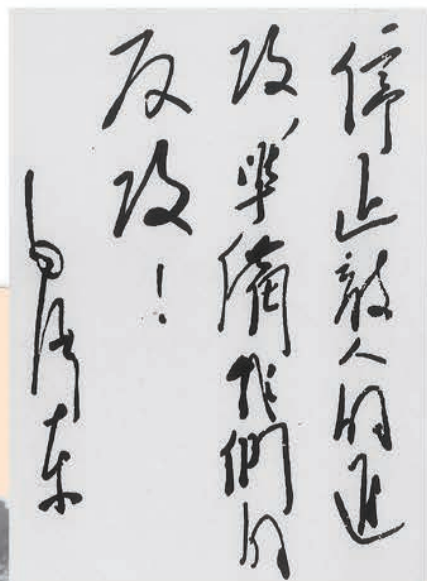 停止敵人的進
攻，準備我們的
反攻！
毛澤东